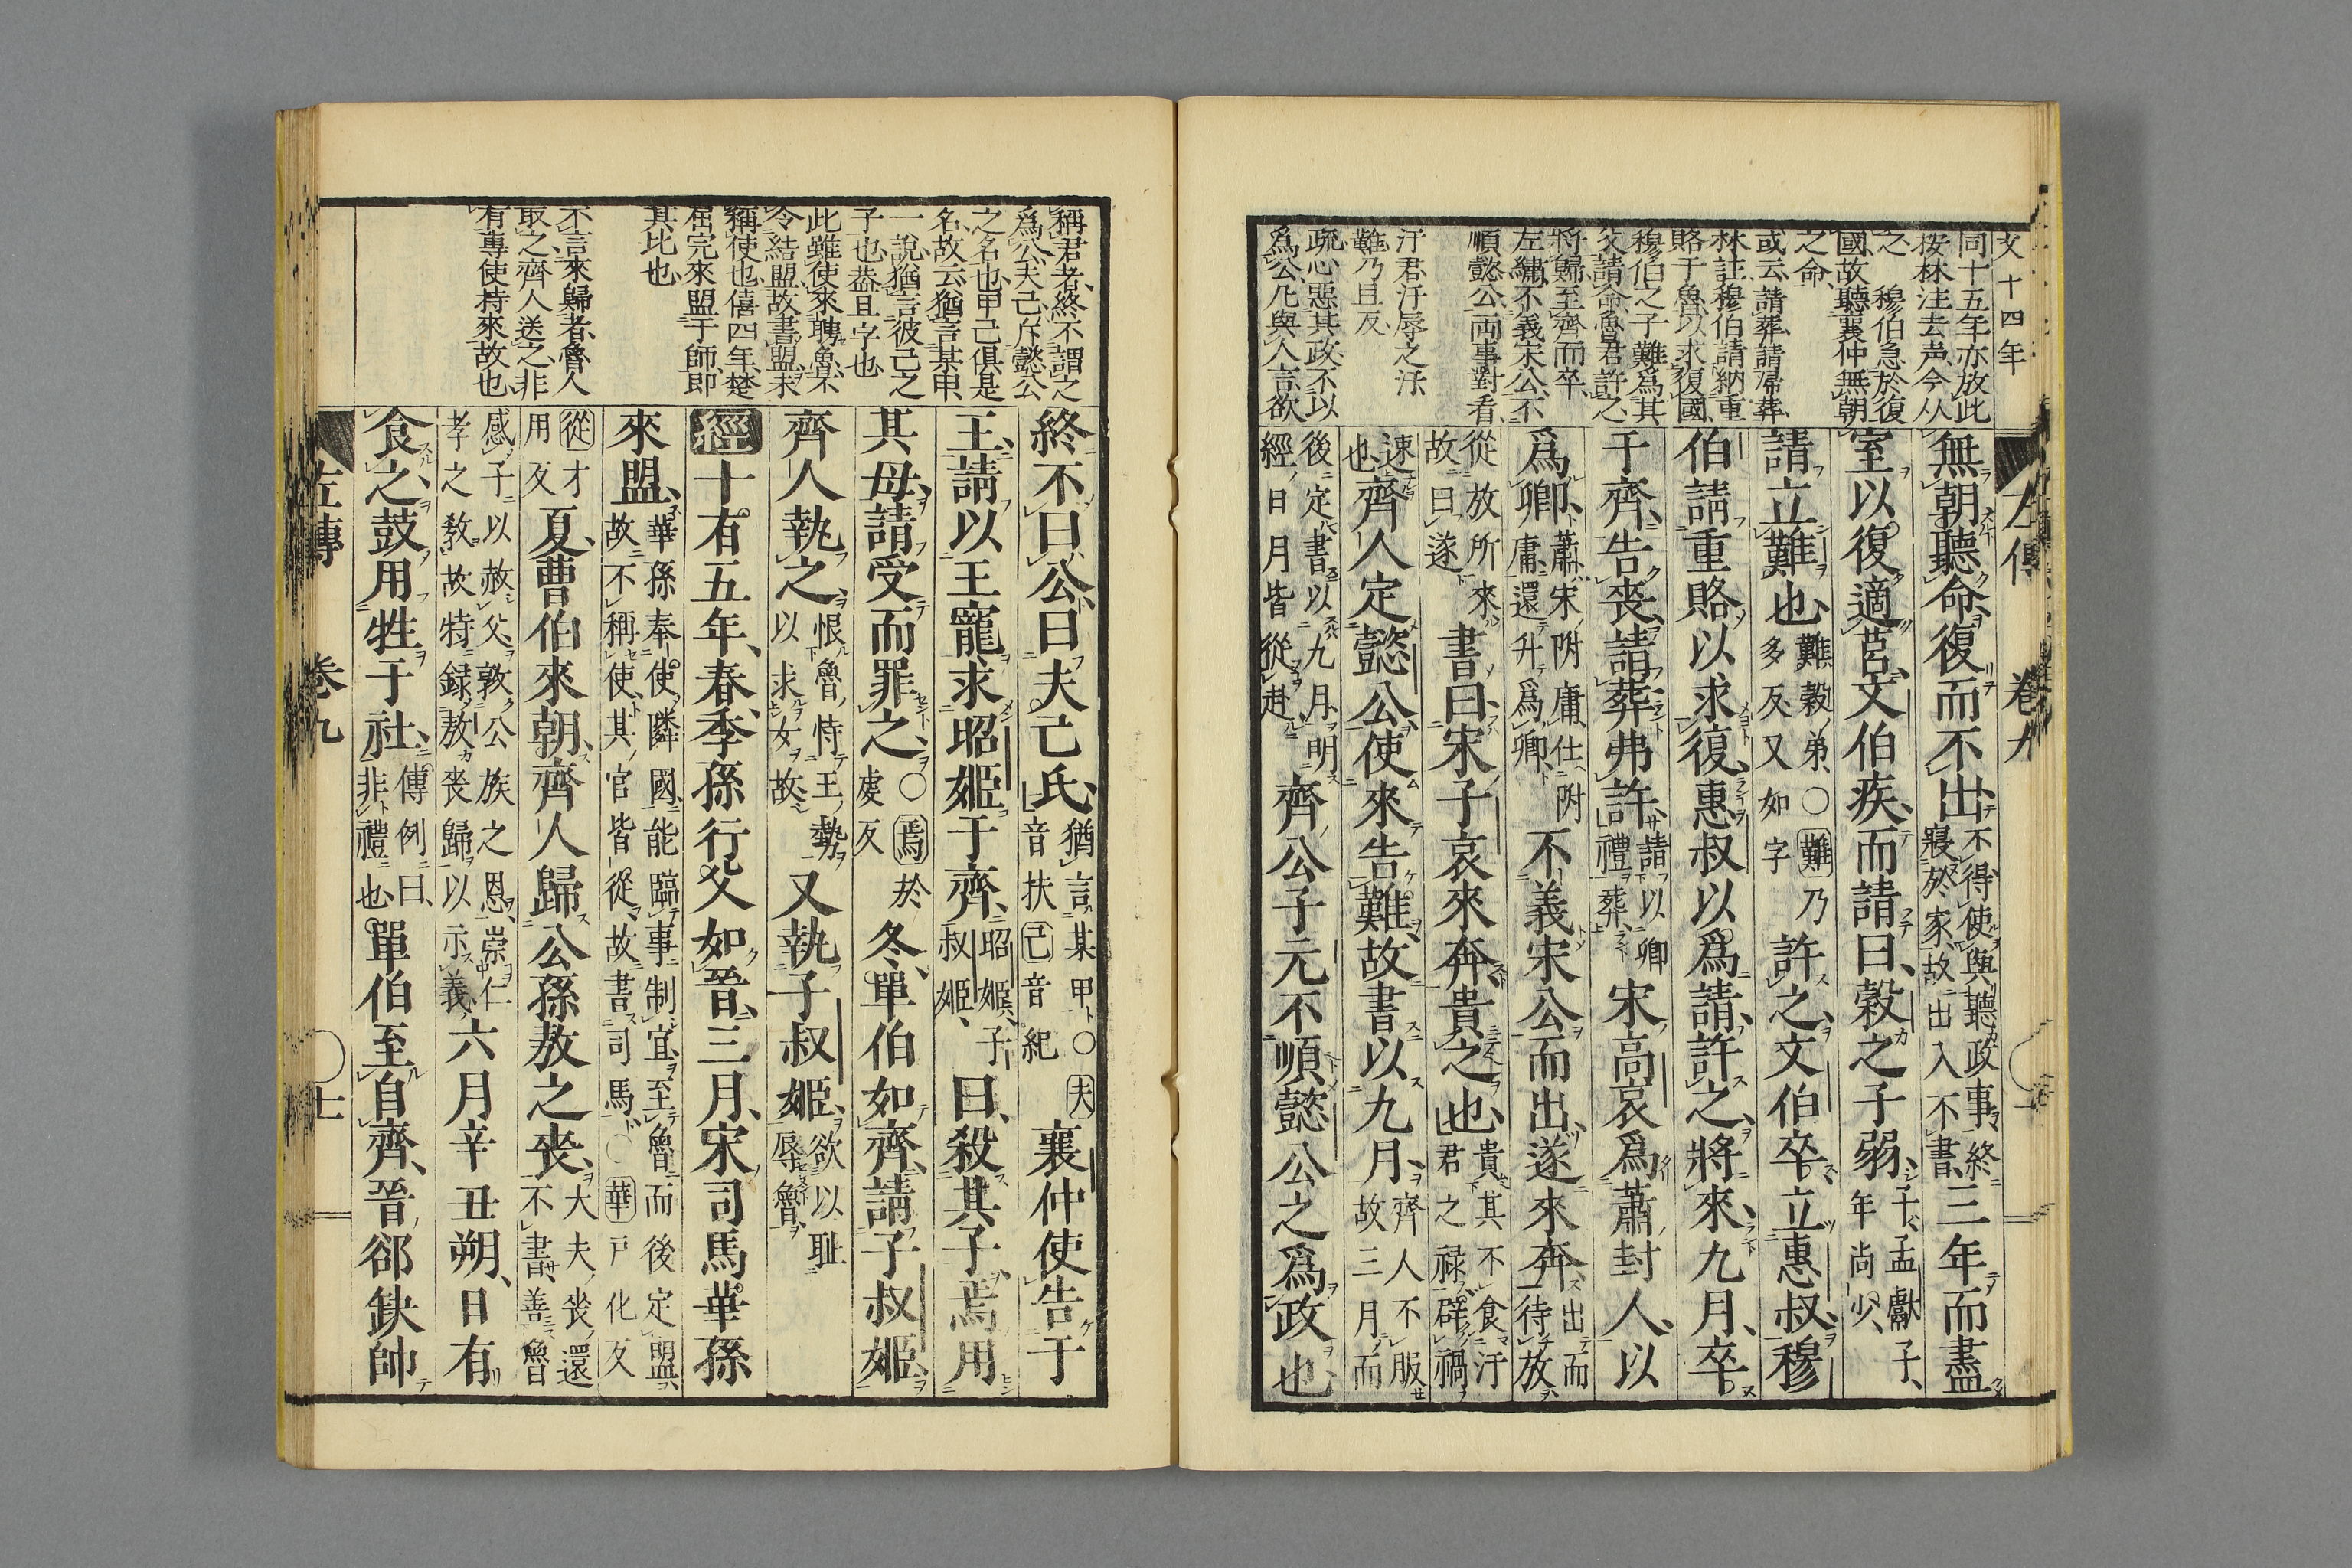 文十四年
同十五年亦放此
按林注去声今从
之　穆伯急於復
國故聽襄仲無朝
之命
或云請葬請歸葬
林註穆伯請納重
賂于魯以求復國
穆伯之子難爲其
父請命魯君許之
將歸至齊而卒
左繡不義宋公不
順懿公両事對看
汙君汙辱之汙
難乃旦反
疏惡其政不以
爲公凡與人言欲
左傳　卷九
無朝聽命復而不出不得使與聽政事終
寢於家故出入不書三年而盡
室以復適莒文伯疾而請曰穀之子弱子孟獻子
年尚少
請立難也難穀弟○難乃
多反又如字許之文伯卒立惠叔穆
伯請重賂以求復惠叔以爲請許之將來九月卒
于齊告喪請葬弗許請以卿
禮葬宋高哀爲蕭封人以
爲卿蕭宋附庸仕附
庸還升爲卿不義宋公而出遂來奔出而待放
從放所來
故曰遂書曰宋子哀來奔貴之也貴其不食汙
君之祿辟禍
速
也齊人定懿公使來告難故書以九月齊人不服
故三月而
後定書以九月明
經日月皆從赴齊公子元不順懿公之爲政也
稱君者終不謂之
爲公夫己斥懿公
之名也甲己俱是
名故云猶言某甲
一說猶言彼己之
子也蓋且字也
此雖使來聘魯不
令結盟故書盟未
稱使也僖四年楚
屈完來盟于師即
其比也
不言來歸者魯人
取之齊人送之非
有專使特來故也
終不曰公曰夫己氏猶言某甲○夫
音扶己音紀襄仲使告于
王請以王寵求昭姬于齊昭姬子
叔姬曰殺其子焉用
其母請受而罪之○焉於
虔反冬單伯如齊請子叔姬
齊人執之恨魯恃王勢
以求女故又執子叔姬欲以耻
辱魯
經十有五年春季孫行父如晉三月宋司馬華孫
來盟華孫奉使鄰國能臨事制宜至魯而後定盟
故不稱使其官皆從故書司馬○華戶化反
從才
用反夏曹伯來朝齊人歸公孫敖之喪大夫喪還
不書善魯
感子以赦父敦公族之恩崇仁
孝之教故特録敖喪歸以示義六月辛丑朔日有
食之鼓用牲于社傳例曰
非禮也單伯至自齊晉郤缺帥
左傳　卷九